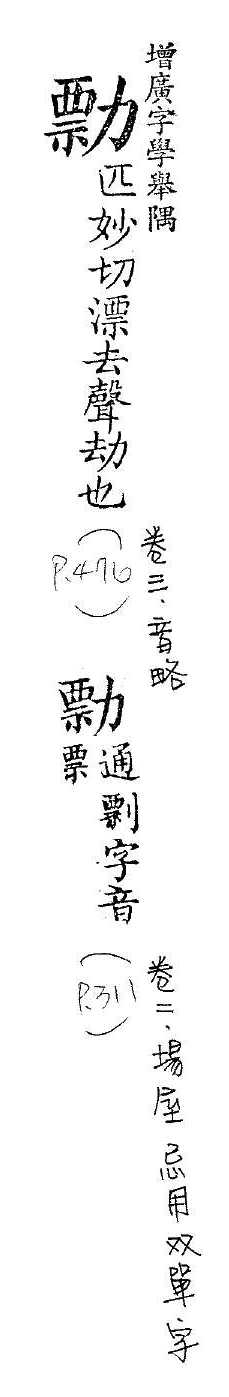 增廣字學舉隅
勡匹妙切漂去聲劫也
(P.476)
卷三．音略
勡通剽字音
票
(P.311)
卷二．場屋忌用双單字